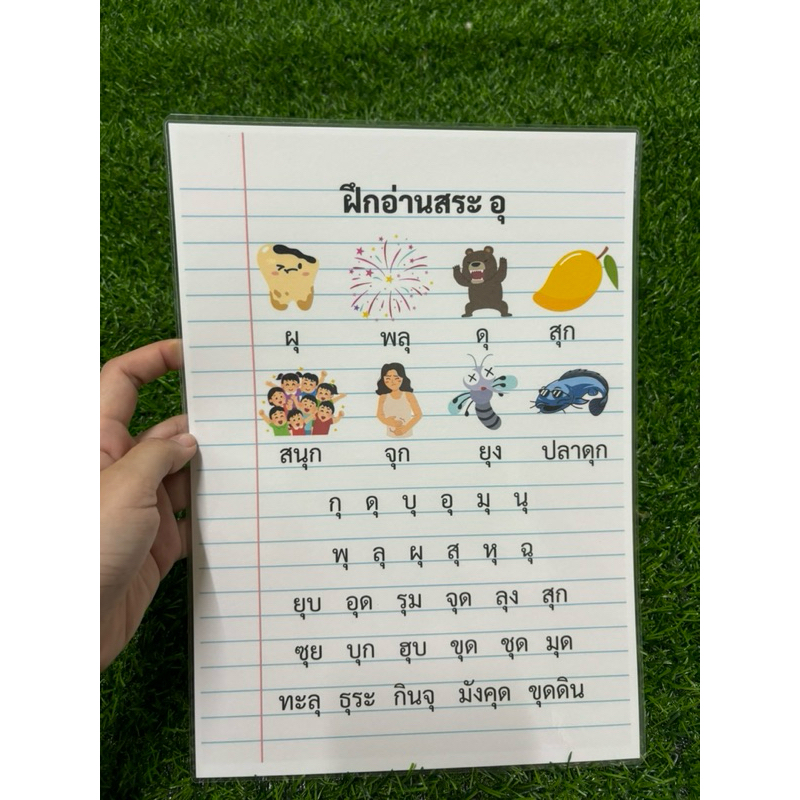 ฝึกอ่านสระ อุ
ผุ พลุ ดุ สุก
สนุก จุก ยุง ปลาดุก
กุ ดุ บุ อุ มุ นุ
พุ ลุ ผุ สุ หุ ฉุ
ยุบ อุด รุม จุด ลุง สุก
ซุย บุก ฮุบ ขุด ชุด มุด
ทะลุ ธุระ กินจุ มังคุด ขุดดิน